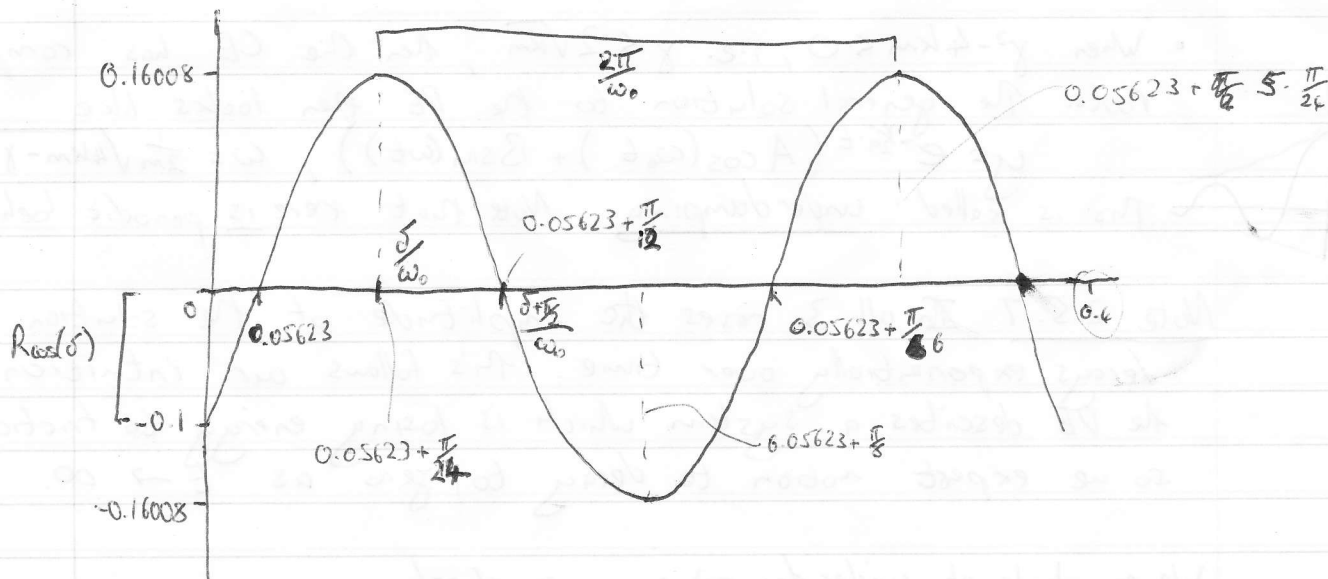 2π/ω₀
0.16008
0.05623 + 5·π/24
0.05623 + π/12
δ/ω₀
0
0.05623
(δ+π/2)/ω₀
0.05623 + π/6
0.4
Rcos(δ)
-0.1
0.05623 + π/24
0.05623 + π/8
-0.16008